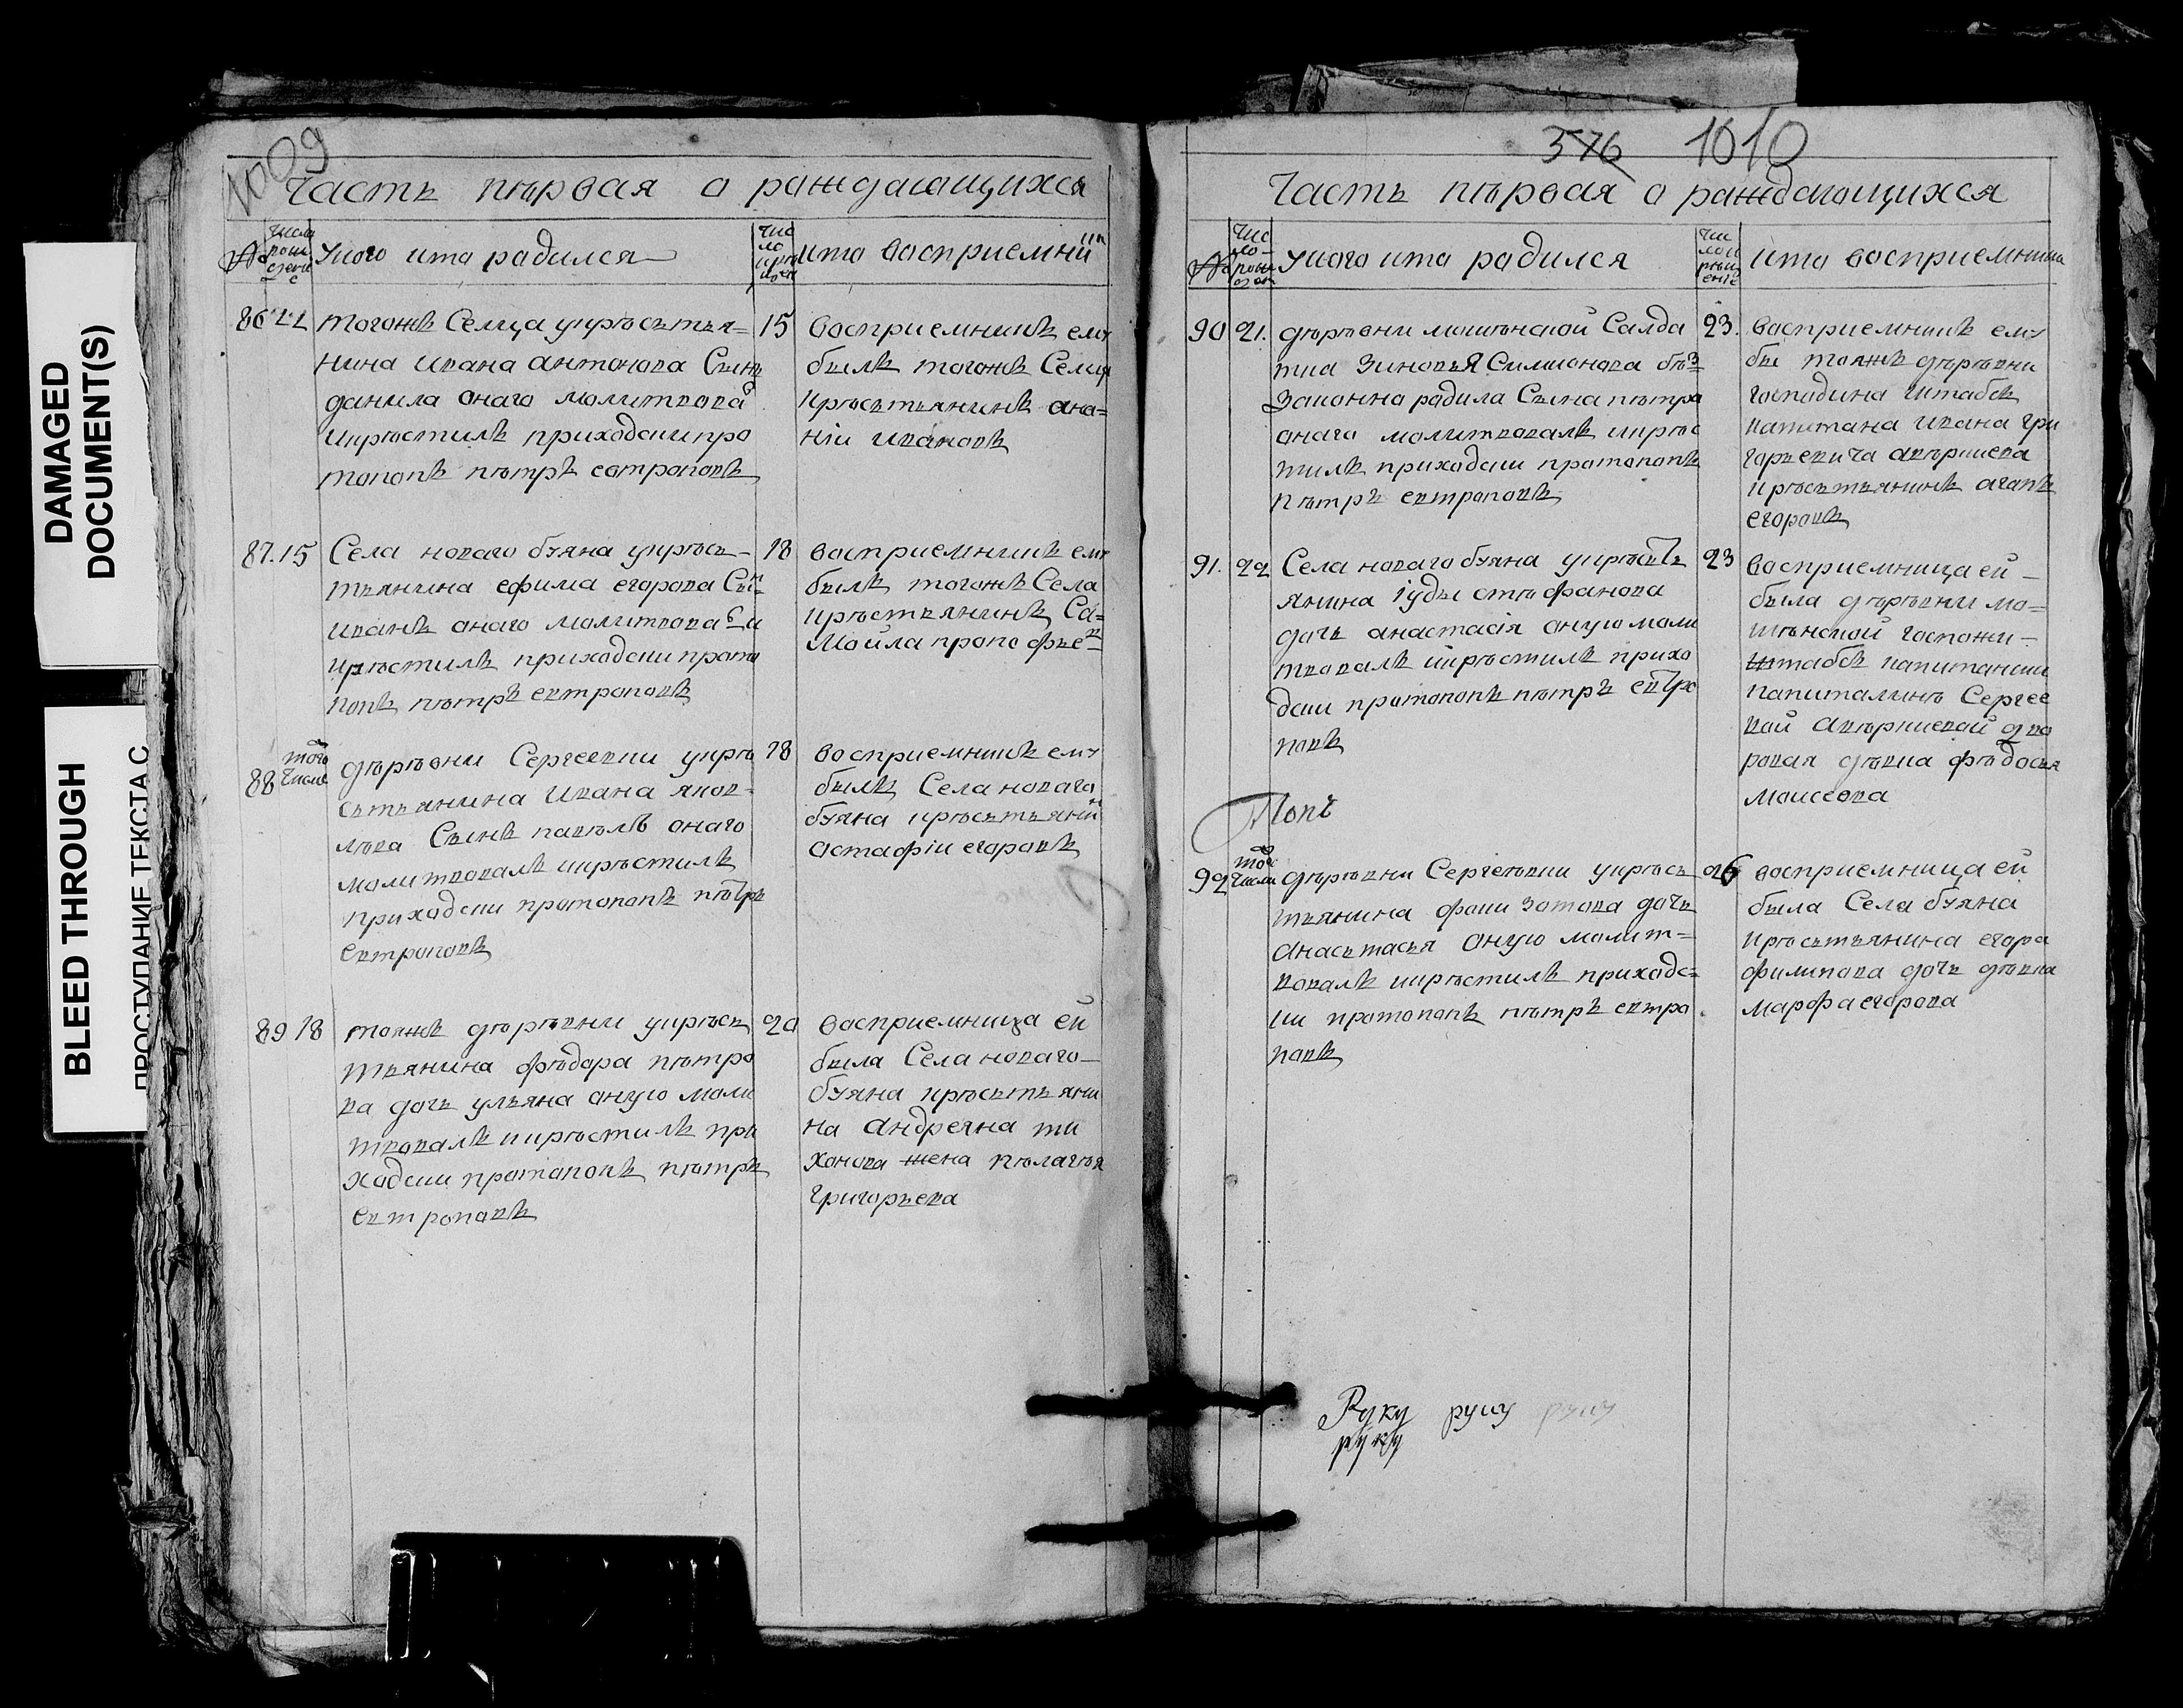 DAMAGED
DOCUMENT(S)
BLEED THROUGH
ПРОСТУПАНИЕ ТЕКСТА С
1009
Часть первая о раждающихся
№
числа
рож
дени
е
У кого кто радился
чис
ло
кре
щен
кто восприемник
86
22
тогожъ Селца у кресьтья=
нина ивана антонова Сынъ
данила онаго молитвовал
и крестилъ приходски про
топопъ петръ евтроповъ
15
восприемникъ ему
былъ тогожъ Селца
кресьтьянинъ ана=
ніи ивановъ
87.
15
Села новаго буяна у кресь-
тьянина ефима егорова Сын
иванъ онаго молитвовал и
крестилъ приходски прото
попъ петръ евтроповъ
18
восприемникъ ему
былъ тогожъ Села
крестьянинъ Са=
мойла прокофьев
88
того
числ
деревни Сергеевки у кре
сьтьянина ивана яков
лева Сынъ павелъ онаго
молитвовалъ и крестилъ
приходски протопопъ петръ
евтроповъ
18
восприемникъ ему
былъ Села новаго
буяна кресьтьянин
астафіи егоровъ
89
18
тояжъ деревни у кресь
тьянина федора петро
ва дочь ульяна оную моли
твовалъ и крестилъ при
ходски протопопъ петръ
евтроповъ
20
восприемница ей
была Села новаго
буяна кресьтьяни
на андреяна ти
хонова жена пелагея
григорьева
376 1010
Часть первая о раждающихся
№
чис
ло
рож
ден
у кого кто радился
чи
сло к
рещ
ение
кто восприемники
90
21.
деревни мошенской Салда
тка зиновья Симионова без
законно радила Сына петра
онаго молитвовалъ и крес
тилъ приходски протопопъ
петръ евтроповъ
23.
восприемникъ ему
бы тояжъ деревни
господина штабсъ
капитана ивана гри
горьевича аверкиева
кресьтьянинъ агапъ
егоровъ
91.
22
Села новаго буяна у кресть
янина іуды стефанова
дочь анастасія оную моли
твовалъ и крестилъ прихо
дски протопопъ петръ евтро
повъ
23
восприемница ей
была деревни мо=
шенской госпожи
штабсъ капитанши
капиталины Сергее
вой аверкиевой дво
ровая девка федосья
моисеева
Попъ
92
того
числа
деревни Сергеевки у кресь
тьянина фоки зотова дочь
анасьтасья оную молит=
вовалъ и крестилъ приходс=
ки протопопъ петръ евтро
повъ
26
восприемница ей
была Села буяна
кресьтьянина егора
филипова дочь девка
марфа егорова
Руку руку руку
руку